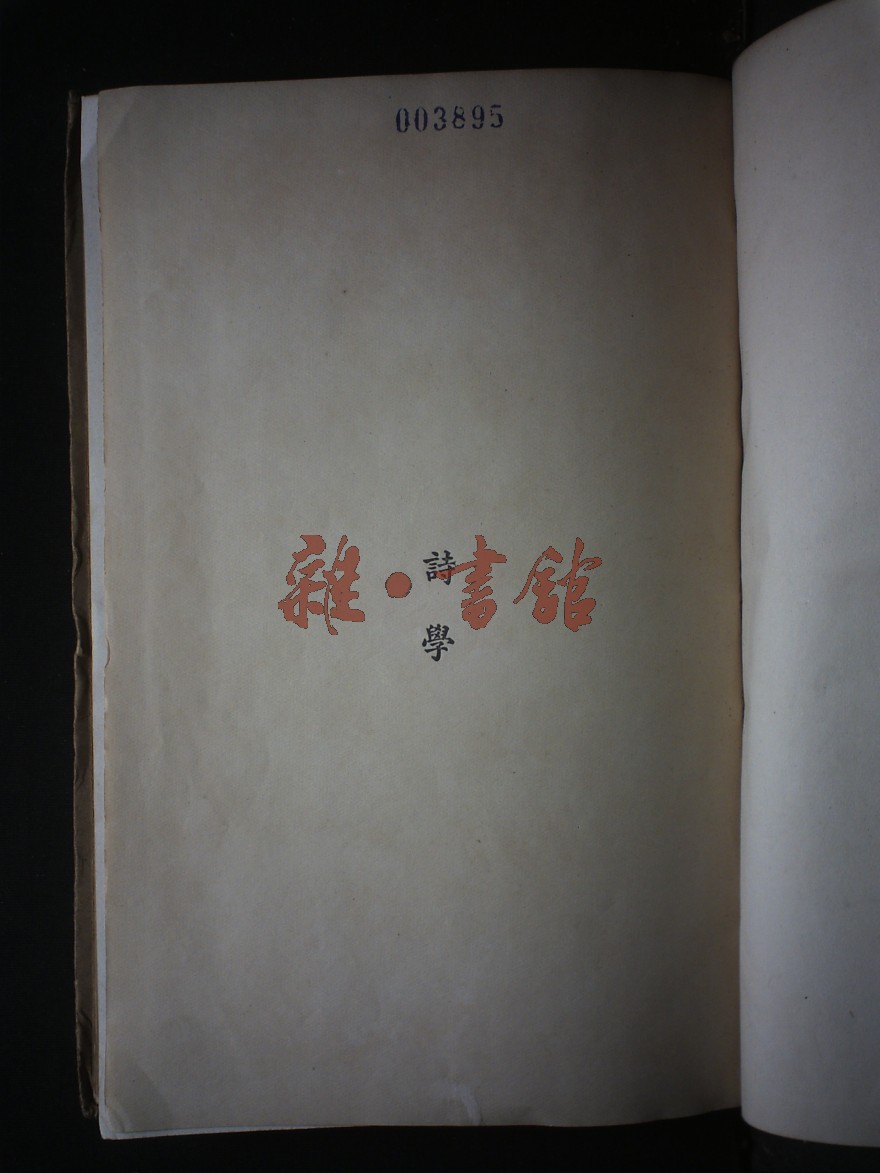 003895
詩學
雜·書館